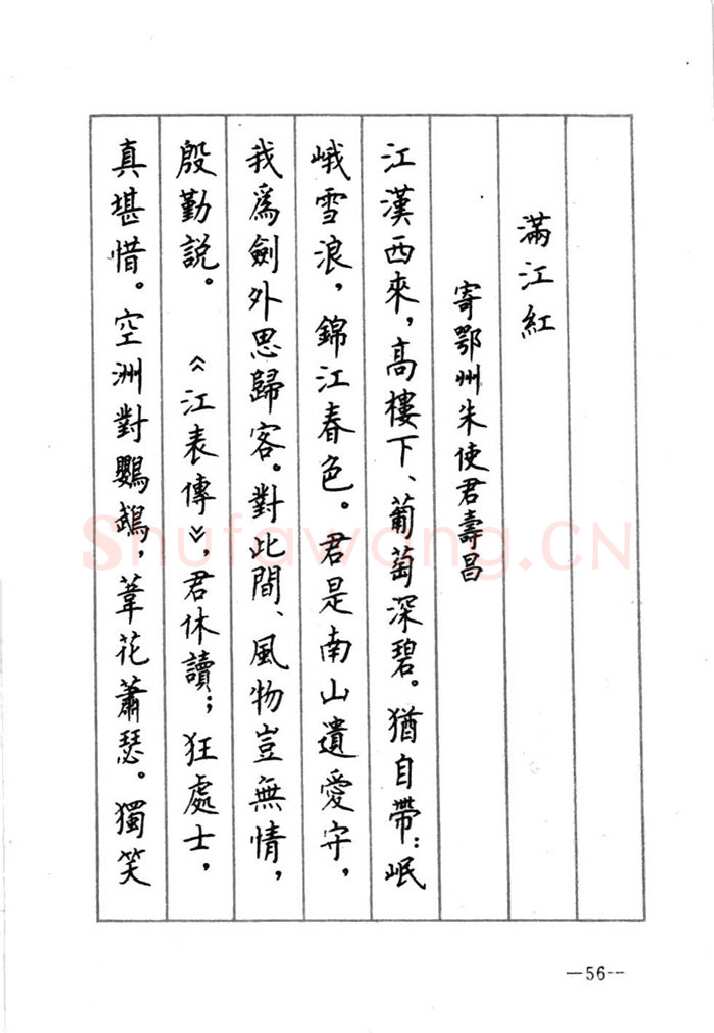 滿江紅
寄鄂州朱使君壽昌
江漢西來，高樓下、葡萄深碧。猶自帶：岷
峨雪浪，錦江春色。君是南山遺愛守，
我爲劍外思歸客。對此間、風物豈無情，
殷勤説。《江表傳》，君休讀；狂處士，
真堪惜。空洲對鸚鵡，葦花蕭瑟。獨笑
—56--
Shufawang.CN